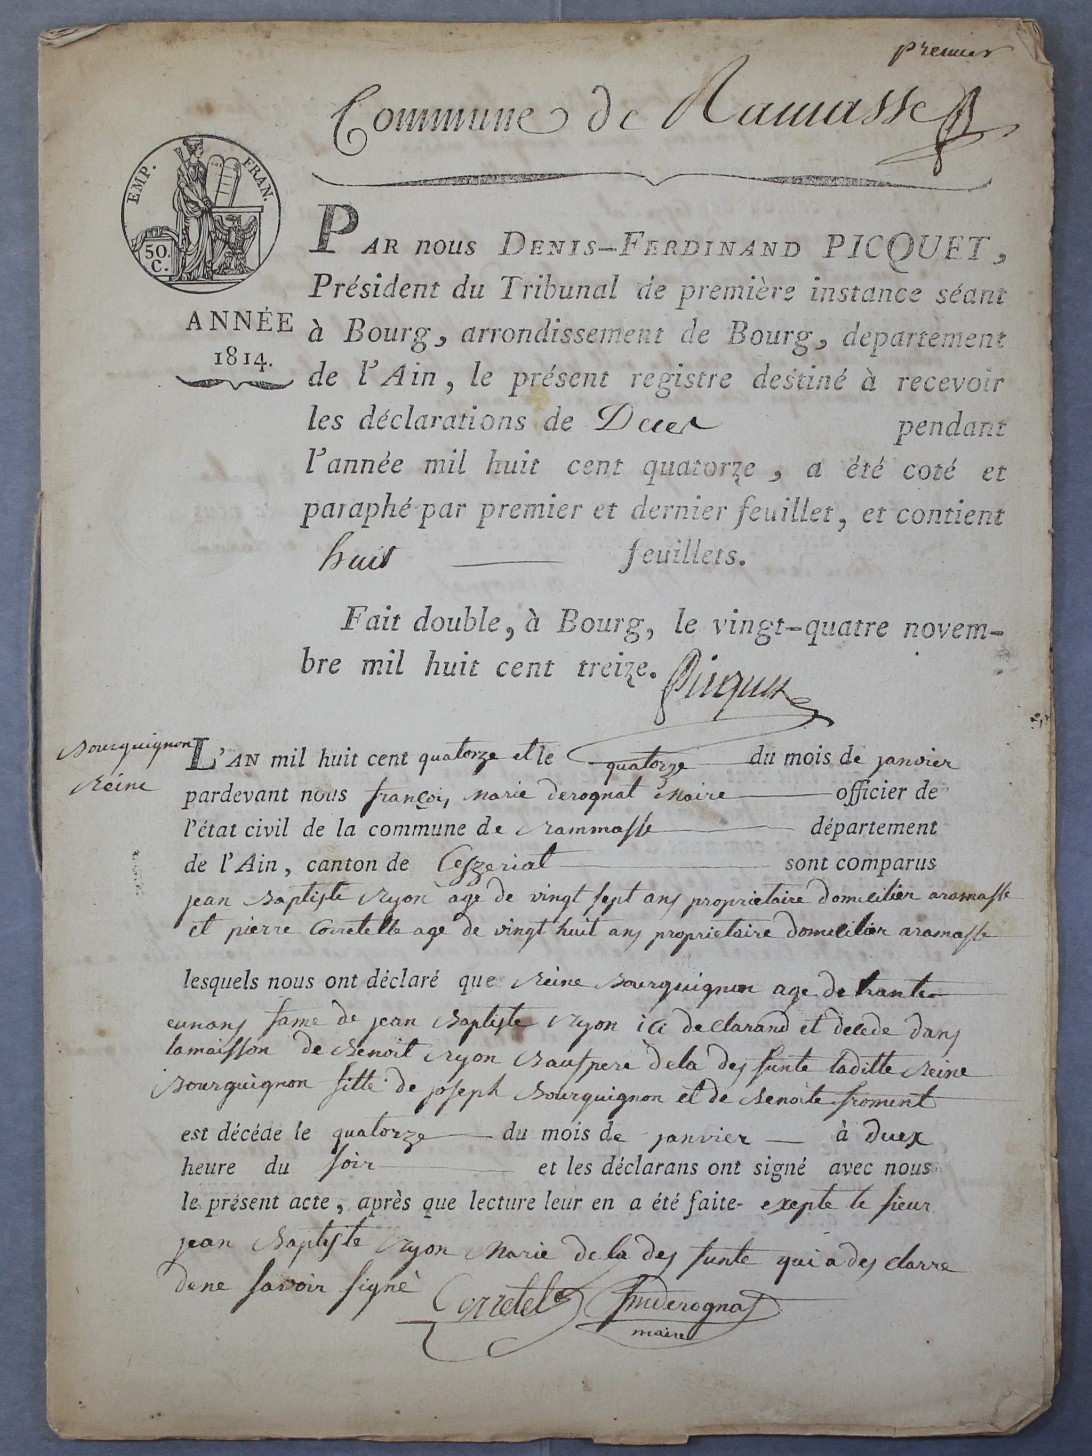 premier
Commune de Ramasse
EMP. FRAN.
50.
C.
ANNÉE
1814.
PAR NOUS DENIS-FERDINAND PICQUET,
Président du Tribunal de première instance séant
à Bourg, arrondissement de Bourg, département
de l'Ain, le présent registre destiné à recevoir
les déclarations de Deces pendant
l'année mil huit cent quatorze, a été coté et
paraphé par premier et dernier feuillet, et contient
huit feuillets.
Fait double, à Bourg, le vingt-quatre novem-
bre mil huit cent treize.
Picquet
Bourguignon
Reine
L'AN mil huit cent quatorze et le quatorze du mois de janvier
pardevant nous françois marie derognat maire officier de
l'état civil de la commune de rammasse département
de l'Ain, canton de Ceyzeriat sont comparus
jean Baptiste Ryon age de vingt sept ans proprietaire domicilier aramasse
et pierre Corretelle age de vingt huit ans proprietaire domicilier aramasse
lesquels nous ont déclaré que Reine Bourguignon age de trante
eunans fame de jean Baptiste Ryon ici declarand et decede dans
lamaisson de Benoit Ryon Baufpere dela des funte laditte Reine
Bourguignon fille de joseph Bourguignon et de Benoite froment
est décédé le quatorze du mois de janvier à duex
heure du soir et les déclarans ont signé avec nous
le présent acte, après que lecture leur en a été faite- exepte le sieur
jean Baptiste Ryon Marie de la des funte qui a des clarre
dene savoir signè
Corretel fmderognat
maire